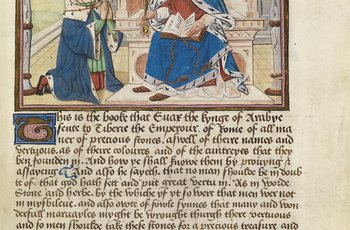 This is the book that Euax the kynge of Arabye
sente to Tiberie the Emperour of Rome of all ma
ner of precious stones, aswell of theire names and
vertuous, as of there coloures and of the cuntreyes that they
ben founden in. And how ye shall knowe them by proevyng &
assayeng. And also he sayeth, that no man shoulde be in doub
te of that god hath sett and put great vertu in. As in worde
Stone and herbe, by the whiche yf yt so were that men wer not
in mysbileve, and also owte of fowle synnes that many and won
derfull marvayles myght be wrought thurgh there vertuous
and so men shoulde take their stones for a precious treasure and